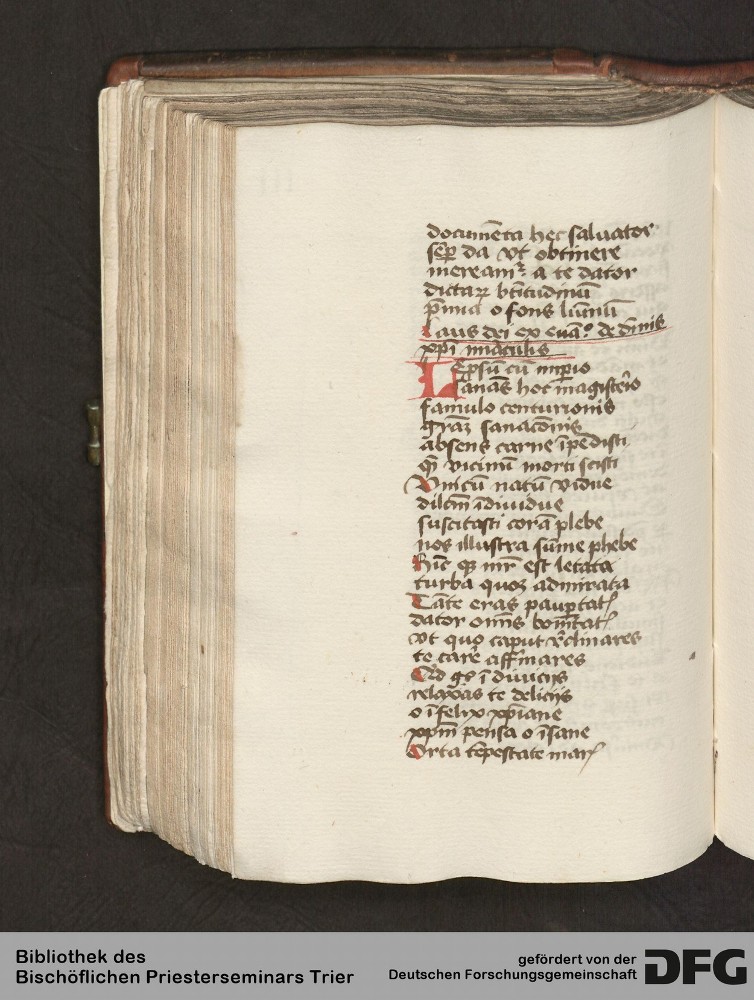 documēta hec saluator
sēp da vt obtinere
mereamʳ a te dator
dictaꝝ bt̄itudinū
p̄mia o fons lūinū
Laus dei ex euāᵒ de diuīs
xp̄i mīaculis
Lepsū cū impio
sanās hoc magisterio
famulo centurionis
grām sanac̄onis
absens carne īpēdisti
qm̄ vicinū morti scisti
Vnicū natū vidue
dilcm̄ īdiuidue
suscitasti corā plebe
nos illustra sūme phebe
Hīc qꝫ mr̄ est letata
turba quoꝫ admirata
Tāte eras paup̄tatꝭ
dator om̄is bonitatꝭ
vt quo caput reclinares
te carē affirmares
Sed gͦ ī diuicijs
relaxas te delicijs
o īfelix xp̄iane
xp̄m pensa o īsane
Orta tēpestate marꝭ
Bibliothek des
Bischöflichen Priesterseminars Trier
gefördert von der
Deutschen Forschungsgemeinschaft
DFG